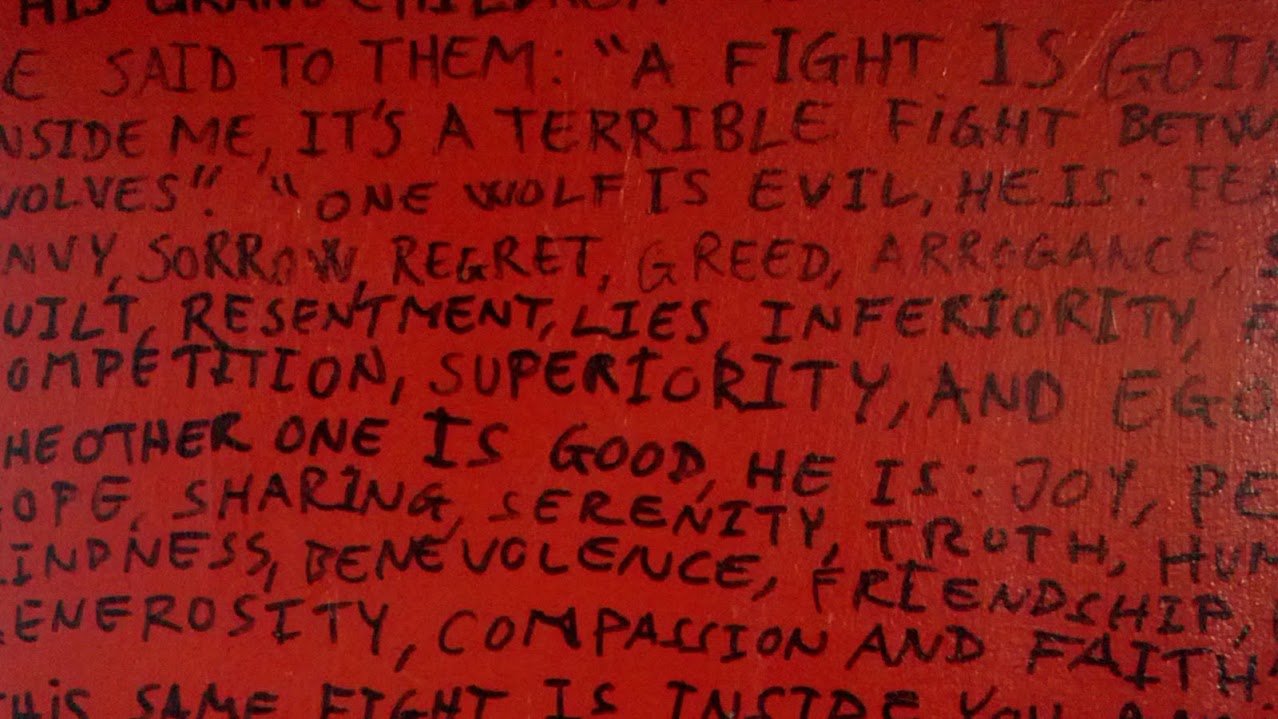 HIS GRAND CHILDREN
E SAID TO THEM: "A FIGHT IS GOIN
NSIDE ME, IT'S A TERRIBLE FIGHT BETW
WOLVES". "ONE WOLF IS EVIL, HE IS: FEA
NVY, SORROW, REGRET, GREED, ARROGANCE, S
UILT, RESENTMENT, LIES, INFERIORITY, F
OMPETITION, SUPERIORITY, AND EGO
HE OTHER ONE IS GOOD, HE IS: JOY, PE
OPE, SHARING, SERENITY, TRUTH, HUM
INDNESS, BENEVOLENCE, FRIENDSHIP,
ENEROSITY, COMPASSION AND FAITH
THIS SAME FIGHT IS INSIDE YOU